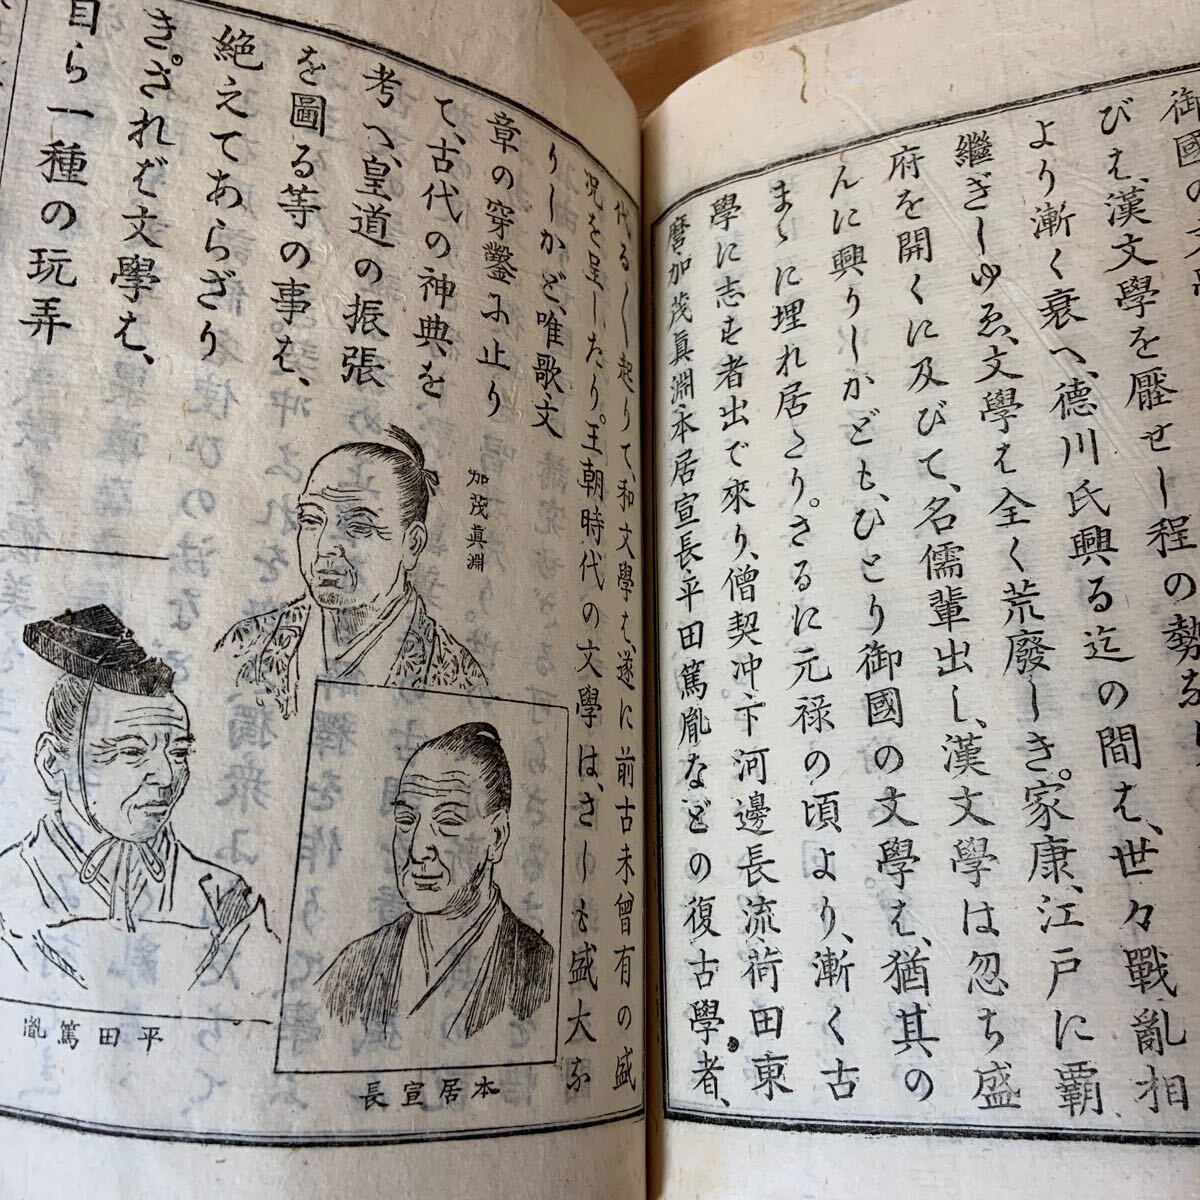 御國の文學
びハ、漢文學を壓せし程の勢
より漸く衰へ、德川氏興る迄の間ハ、世々戰亂相
繼ぎしゆゑ、文學ハ全く荒廢しき。家康、江戸に覇
府を開くに及びて、名儒輩出し、漢文學は忽ち盛
んに興りしかども、ひとり御國の文學ハ、猶其の
まゝに埋れ居たり。さるに元祿の頃より、漸く古
學に志す者出で來り、僧契冲、下河邊長流、荷田東
麿、加茂眞淵、本居宣長、平田篤胤などの復古學者、
代る〱起りて、和文學ハ、遂に前古未曾有の盛
況を呈したり。王朝時代の文學は、さしも盛大な
りしかど、唯歌文
章の穿鑿に止り
て、古代の神典を
考へ、皇道の振張
を圖る等の事ハ、
絶えてあらざり
き。されバ文學ハ、
自ら一種の玩弄
加茂眞淵
本居宣長
平田篤胤